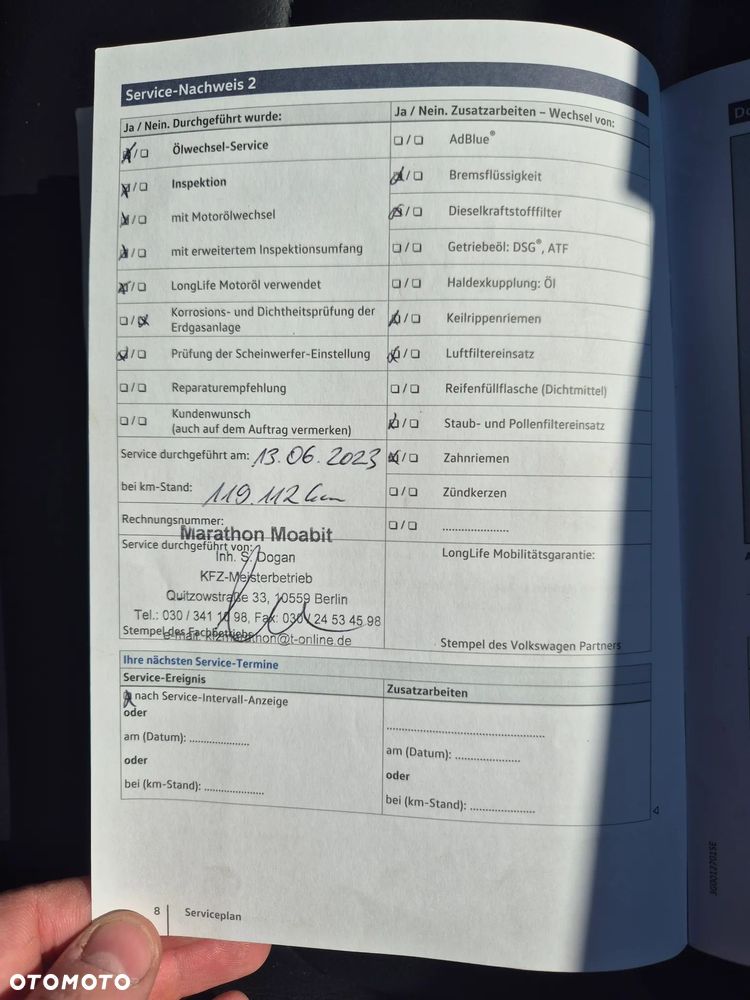 Service-Nachweis 2
Ja / Nein. Durchgeführt wurde:
Ölwechsel-Service
Inspektion
mit Motorölwechsel
mit erweitertem Inspektionsumfang
LongLife Motoröl verwendet
Korrosions- und Dichtheitsprüfung der
Erdgasanlage
Prüfung der Scheinwerfer-Einstellung
Reparaturempfehlung
Kundenwunsch
(auch auf dem Auftrag vermerken)
Service durchgeführt am: 13.06.2023
bei km-Stand: 119.112 km
Rechnungsnummer:
Service durchgeführt von:
Marathon Moabit
Inh. S. Dogan
KFZ-Meisterbetrieb
Quitzowstraße 33, 10559 Berlin
Tel.: 030 / 341 10 98, Fax: 030 / 24 53 45 98
e-mail: kfzmarathon@t-online.de
Stempel des Fachbetriebs
Ja / Nein. Zusatzarbeiten – Wechsel von:
AdBlue®
Bremsflüssigkeit
Dieselkraftstofffilter
Getriebeöl: DSG®, ATF
Haldexkupplung: Öl
Keilrippenriemen
Luftfiltereinsatz
Reifenfüllflasche (Dichtmittel)
Staub- und Pollenfiltereinsatz
Zahnriemen
Zündkerzen
.....................
LongLife Mobilitätsgarantie:
Stempel des Volkswagen Partners
Ihre nächsten Service-Termine
Service-Ereignis
nach Service-Intervall-Anzeige
oder
am (Datum): ...................
oder
bei (km-Stand): ...................
Zusatzarbeiten
..................................................
am (Datum): ....................
oder
bei (km-Stand): ....................
8 Serviceplan
3G0012701SE
OTOMOTO